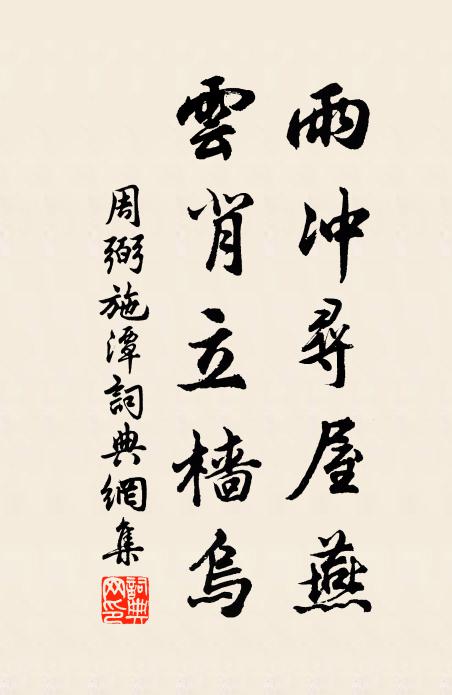 雨冲尋屋燕
雲背立檣烏
周弼施潭詞典網集
詞典網印